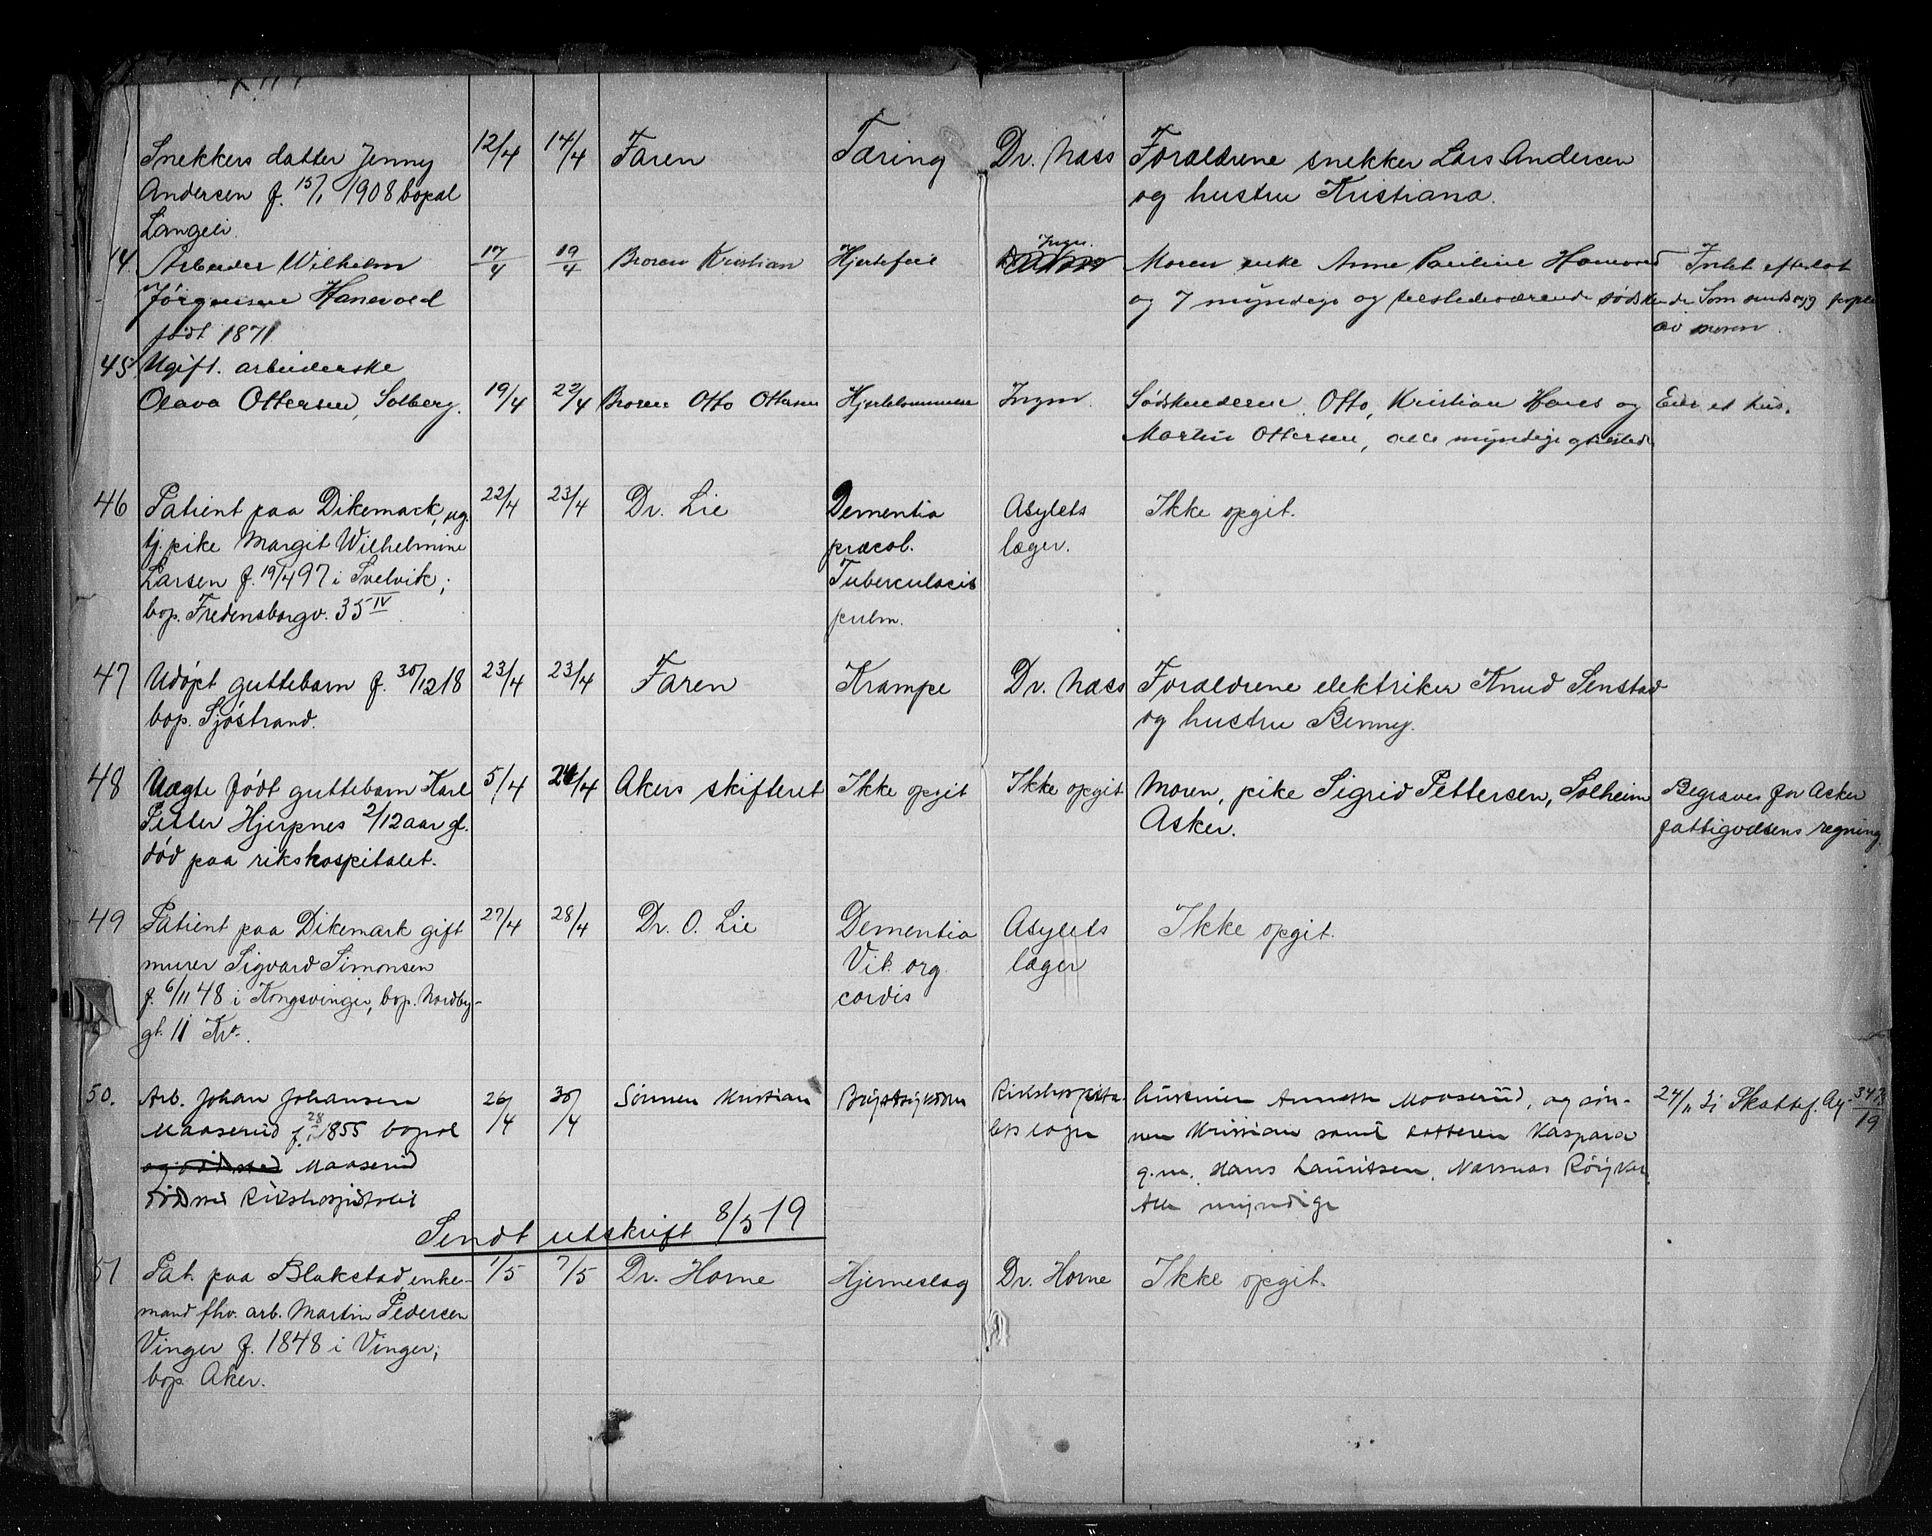 Snekkers datter Jenny 12/4 14/4 Faren Tæring Dr. Næss Forældrene snekker Lars Andersen
Andersen f. 15/1 1908 bopæl og hustru Kristiana.
Langeli.
44. Arbeider Wilhelm 17/4 19/4 Broren Kristian Hjertefeil Ingn. Moren enke Anne Pauline Hanevold Intet efterlot
Jørgensen Hanevold og 7 myndige og tilstedeværende sødskende Som
født 1871 av moren.
45 Ugift. arbeiderske
Olava Ottersen, Solberg. 19/4 22/4 Broren Otto Ottersen Hjertelammelse Ingen. Sødskenderne Otto, Kristian Hans og Eier et hus.
Martin Ottersen, alle myndige
46 Patient paa Dikemark, ug. 22/4 23/4 Dr. Lie Dementia Asylets Ikke opgit.
tj. pike Margit Wilhelmine præcol. læger.
Larsen f. 19/4 97 i Svelvik; Tuberculocis
bop. Fredensborgv. 35 IV pulm.
47 Udøpt guttebarn f. 30/12 18 23/4 23/4 Faren Krampe Dr. Næss Forældrene elektriker Knud Senstad
bop. Sjøstrand. og hustru Benny.
48 Uægte født guttebarn Karl 5/4 24/4 Akers skifteret Ikke opgit Ikke opgit Moren, pike Sigrid Pettersen, Solheim Begraves for Asker
Petter Hjerpnes 2/12 aar gl. Asker. fattigvæsens regning.
død paa rikshospitalet.
49 Patient paa Dikemark gift 27/4 28/4 Dr. O. Lie Dementia Asylets Ikke opgit.
murer Sigvard Simonsen Vit. org. læger
f. 6/11 48 i Kongsvinger, bop. Nordby- cordis
gt. 11 Kr.
50. Arb. Johan Johansen 26/4 30/4 Sønnen Kristian Brystsykdom Rikshospita- hustruen Annette Maaserud, og søn- 24/11 Skattef. Ag. 347/19
Maaserud f. 28/ 1855 bopæl lets læge nen Kristian samt datteren Kaspara
og dødsted Maaserud g.m. Hans Lauritssen, Nærsnæs Røyken.
død ved Rikshospitalet Alle myndige
Sendt utskrift 8/5 19
51 Pat. paa Blakstad enke- 1/5 7/5 Dr. Horne Hjerneslag Dr. Horne Ikke opgit.
mand fhv. arb. Martin Pedersen
Vinger f. 1848 i Vinger;
bop. Aker.